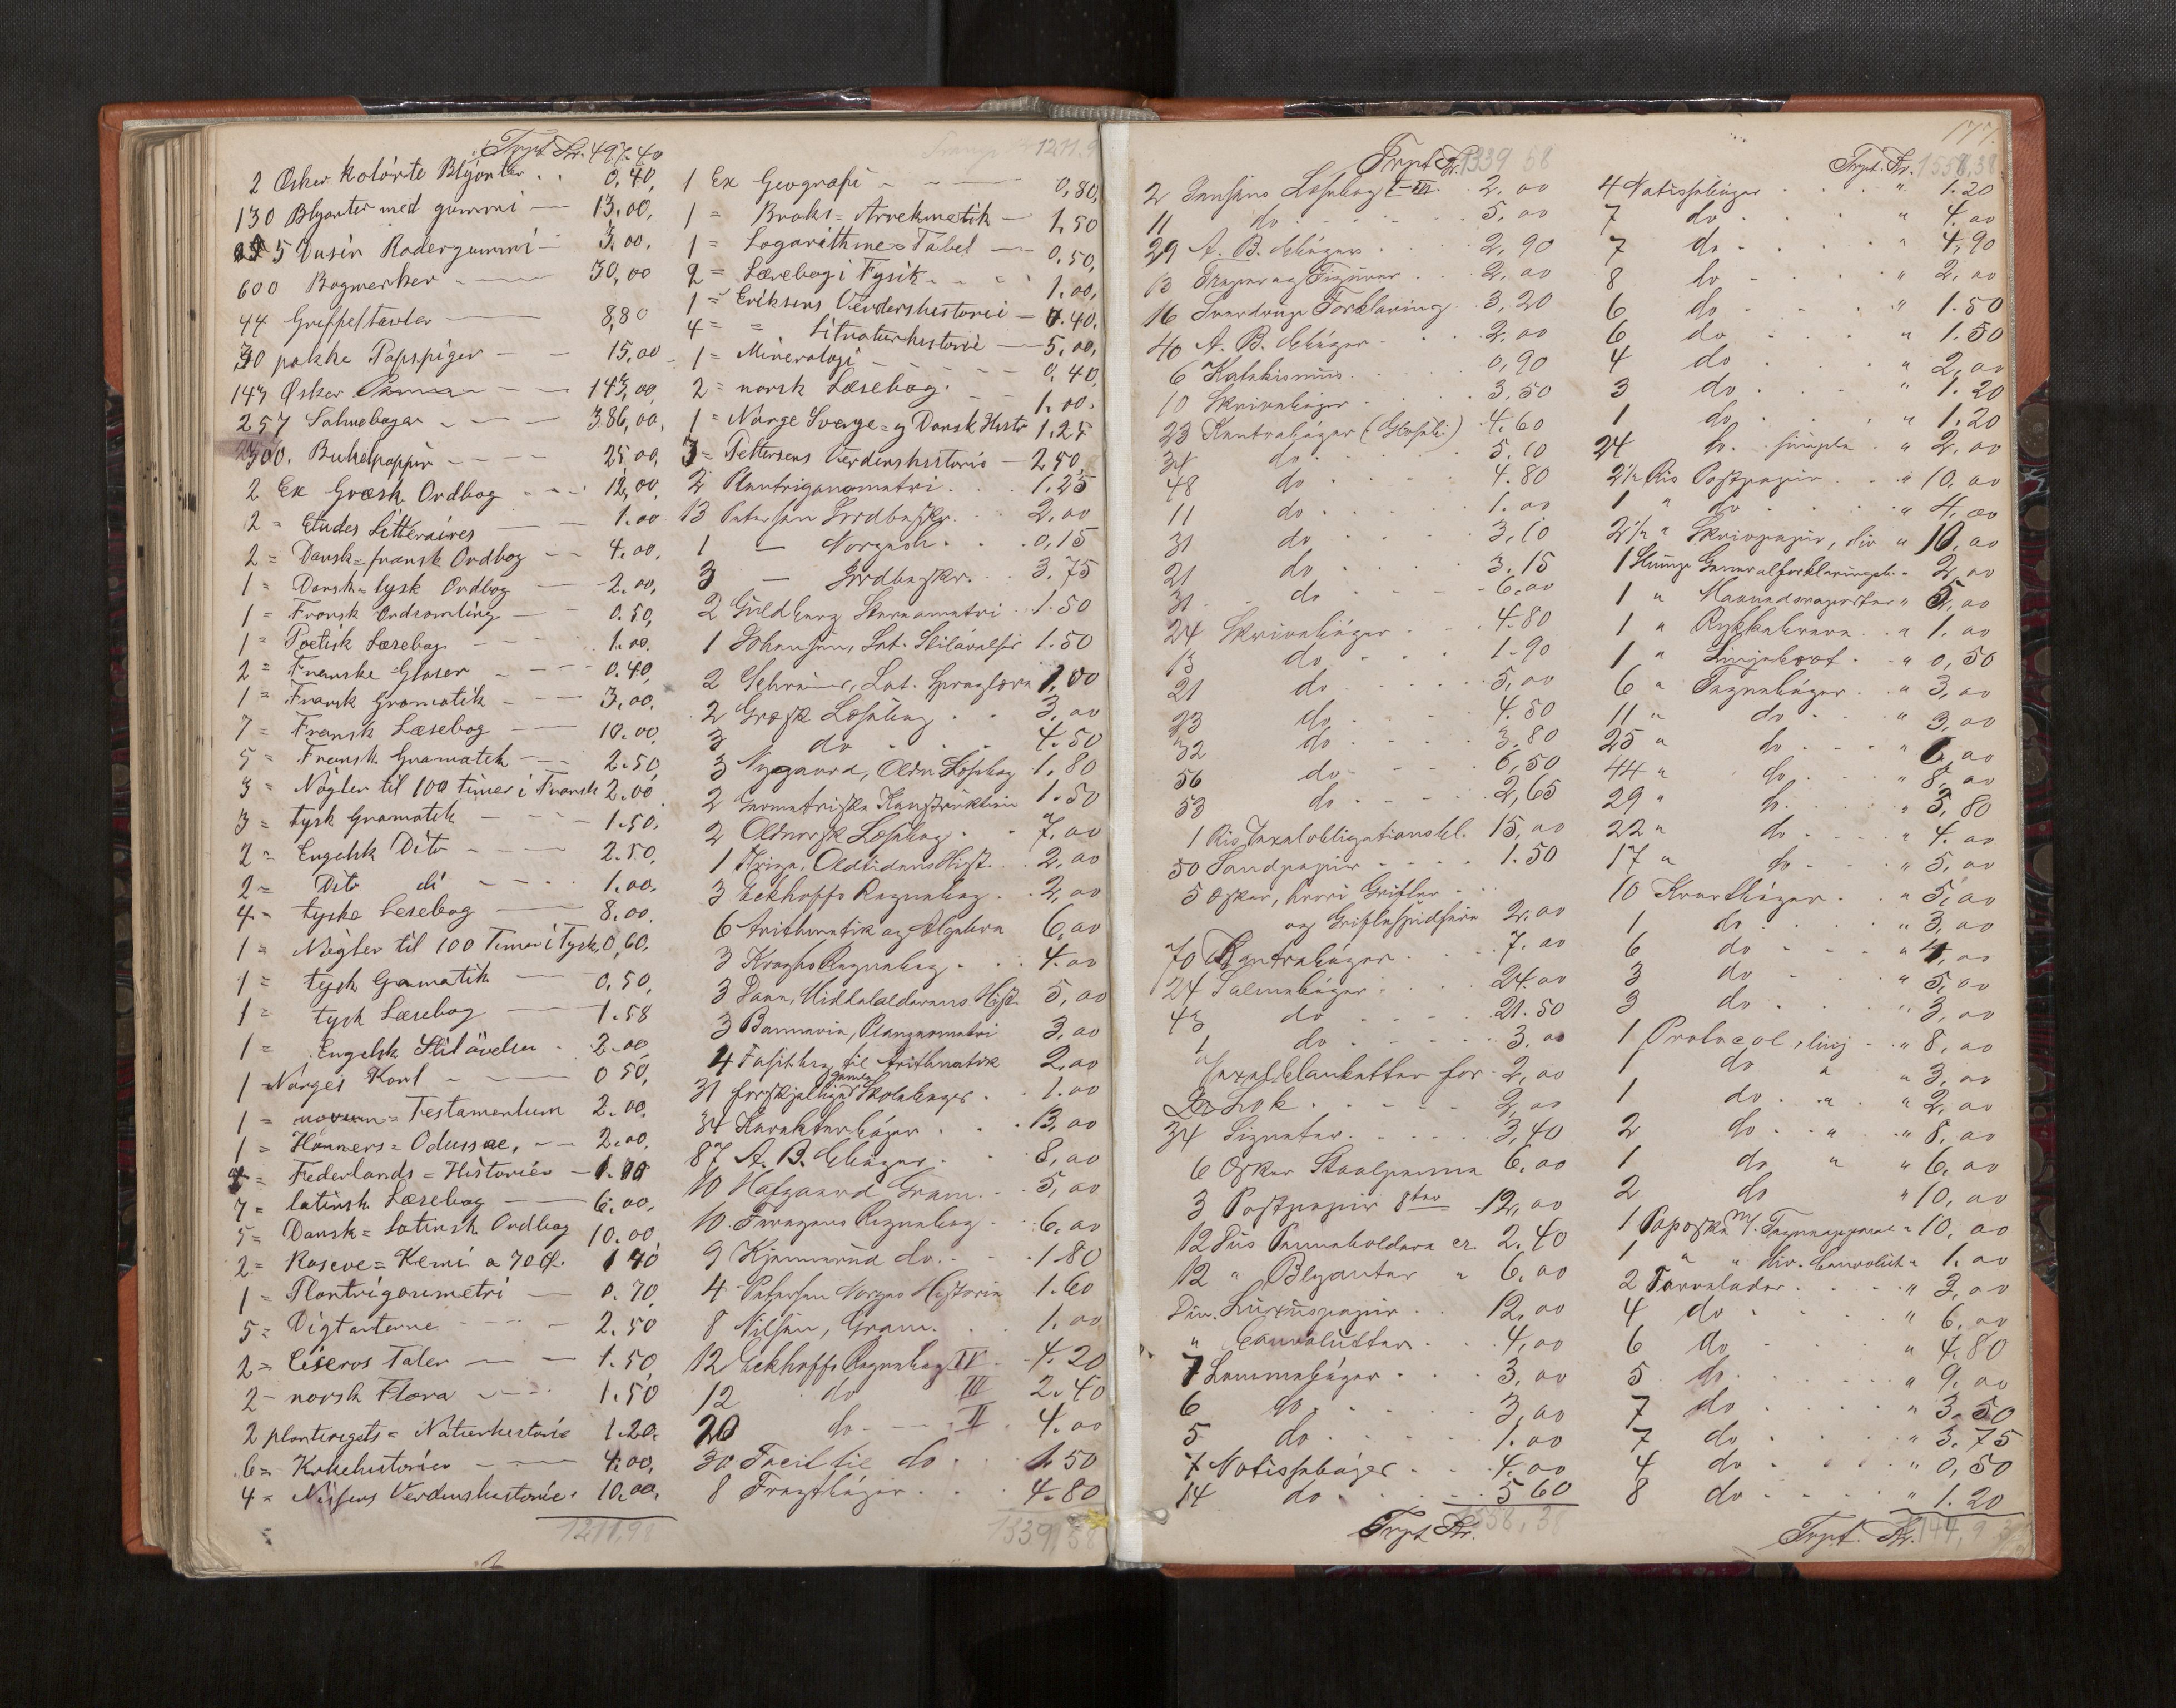 Trpt Kr. 497.40
2 Æsker Kolörte Blÿanter 0,40,
130 Blyanter med gummi 13,00,
5 Dusin Radergummi 3,00,
600 Bogmerker 30,00
44 Griffeltavler 8,80
30 pakke Papspiger 15,00
147 Æsker 147,00
257 Salmebøger 386,00,
2500. Buhelpappir 25,00,
2 Ex Græsk Ordbog 12,00,
2 = Etudes Litteraires 1.00
2 = Dansk = fransk Ordbog 4.00,
1 = Dansk = tysk Ordbog 2.00,
1 = Fransk Ordsamling 0.50,
1 = Poetisk Læsebog 1.00.
2 = Franske Gloser 0.40,
1 = Fransk Gramatik 3,00.
7 = Fransk Læsebog 10.00,
5 = Fransk Gramatik 2.50,
3 = Nögler til 100 timer i Fransk 2.00
3 = tysk Gramatik 1.50.
2 = Engelsk Dito 2.50,
2 = Dito di 1.00.
4 = tyske Lesebog 8.00.
1 = Nögler til 100 Timer i Tysk, 0,60.
1 = tysk Gramatik 0.50,
1 = tysk Læsebog 1.58
1 = Engelsk Stilövelser 2.00,
1 = Norges Kart 0 50,
1 = novum = Testamentum 2.00.
1 = Homers = Odussæe, 2.00,
4 = Federlands = Historier 1.10
7 = latinsk Læsebog 6.00,
5 = Dansk = Latinsk Ordbog 10.00,
2 = Roscoe = Kemi a 70 Ø. 1 40
1 = Plantrigonometri 0.70,
5 = Digtarterne 2.50
2 = Ciseros Taler 1.50,
2 - norsk Flora 1.50
2 planterigets = Naturhistorie 1.20.
6 = Kirkehistorier 4.00,
4 = Nissens Verdenshistorie. 10.00.
1211,98
Transp 1211.9
1 Ex Geografi 0,80,
1 = Broks = Arrekmetik 1,50
1 = Logarithme = Tabel 0,50,
2 = Lærebog i Fysik 1.00,
1 = Eriksens Verdershistorie 0.40.
4 = = Litraturhistorie 5,00,
1 = Mineralogi 0,40,
2 = norsk Læsebog. 1.00.
1 = Norge Sverge = og Dansk Histo 1,25
3 = Pettersens Verdenshistorie 2.50,
2 Plantrigonometri 1.25
13 Petersen Jordbeskr. 2,00
1 — Norgesh. 0,15
3 — Jordbeskr. 3.75
2 Guldberg Stereometri 1.50
1 Johansen, Lat. Stiløvelser 1.50
2 Schreiner, Lat. Sproglære 1,00
2 Græsk Læsebog 3,00
3 do 4.50
3 Nygaard, Oldn Læsebog 1.80
2 Geometriske Konstruktion 1.50
2 Oldnorsk Læsebog 7,00
1 Kriga, Oldtidens Hist. 2,00
3 Eckhoffs Regnebog 2,00
6 Arithmetik og Algebra 6,00
3 Kraghs Regnebog 4.00
3 Daae, Middelalderens Hist. 5,00
3 Bonnevie, Plangeometri 3,00
4 Fasitbog til Arithmetik 2,00
31 forskjellige gamle Skolebøger 1.00
34 Karakterbøger 13,00
87 A. B. Cbøger 8,00
10 Hofgaard Gram. 5,00
10. Foragers Regnebog 6.00
9 Kjennerud do. 1.80
4 Petersen Norges Historie 1.60
8 Nilsen, Gram. 1.00
12 Eckhoffs Regnebog IV 4.20
12 do III 2.40
20 do II 4.00
30 Facil til do 1.50
8 Fragtbøger 4.80
1339,58
177.
Trpt Kr. 1339 58
2 Jensens Læsebog I-III. 2.00
11 do 5.00
29 A. B. Cbøger 2,90
13 Træer og Figurer 2,00
16 Sverdrups Forklaring 3,20
40 A. B. Cbøger 2,00
6 Katekismus 0,90
10 Skrivebøger 3.50
23 Kontrabøger 4.60
34 do 5.10
48 do 4.80
11 do 1.00
31 do 3,10
21 do 3.15
31 do 6,00
24 Skrivebøger 4.80
13 do 1.90
21 do 5,00
23 do 4.80
32 do 3,80
56 do 6,50
53 do 2,65
1 Ris Vexelobligationsbl. 15,00
50 Sandpapir 1.50
5 Æsker, hvori Grifler
og Griflespidsere 2,00
70 Kontrabøger 7.00
24 Salmebøger 24.00
43 do 21.50
1 do 3.00
Vexelblanketter for 2,00
20 Lok 2,00
34 Signeter 3,40
6 Æsker Staalpenne 6,00
3 Postpapir 8tav 12,00
12 Dus Penneholdere er. 2.40
12 " Blyanter " 6.00
Div. Luxuspapir 12,00
" Convolutter 4,00
7 Lommebøger 3,00
6 do 3,00
5 do 1.00
7 Notissebøger 4.00
14 do 5 60
Trpt Kr. 1558,38
Trpt. Kr. 1558,38
4 Notissebøger " 1.20
7 do " 4.00
7 do " 4,90
8 do " 2,00
6 do " 1.50
6 do " 1.50
4 do " 2,00
3 do " 1.20
1 do " 1.20
24 do simple " 2,00
2½ Ris Postpapir " 10,00
1 " do " 4,00
2½ " Skrivpapir, div " 10,00
1 Slump Generalforklaringsb. " 2,00
1 " Maanedsrapporter " 5,00
1 " Rykkebreve " 1.00
1 " Linjebret " 0,50
6 " Tegnebøger " 3,00
11 " do " 3,00
25 " do " 6,00
44 " do " 8,00
29 " do " 5,80
22 " do " 4.00
17 " do " 5,00
10 Kvartbøger " 5,00
1 do " 3,00
6 do " 4,00
3 do " 5,00
3 do " 3,00
1 Protocol, linj " 8,00
1 do " " 3,00
1 do " " 2,00
2 do " " 8,00
1 do " " 6,00
2 do " 10,00
1 Papæske m/. Tegneapparat " 10,00
1 " " div. Convolut " 1.00
2 Farvelader " 3,00
4 do " 6,00
6 do " 4.80
5 do " 9,00
7 do " 3.50
7 do " 3.75
4 do " 0,50
8 do " 1.20
Trpt. Kr.